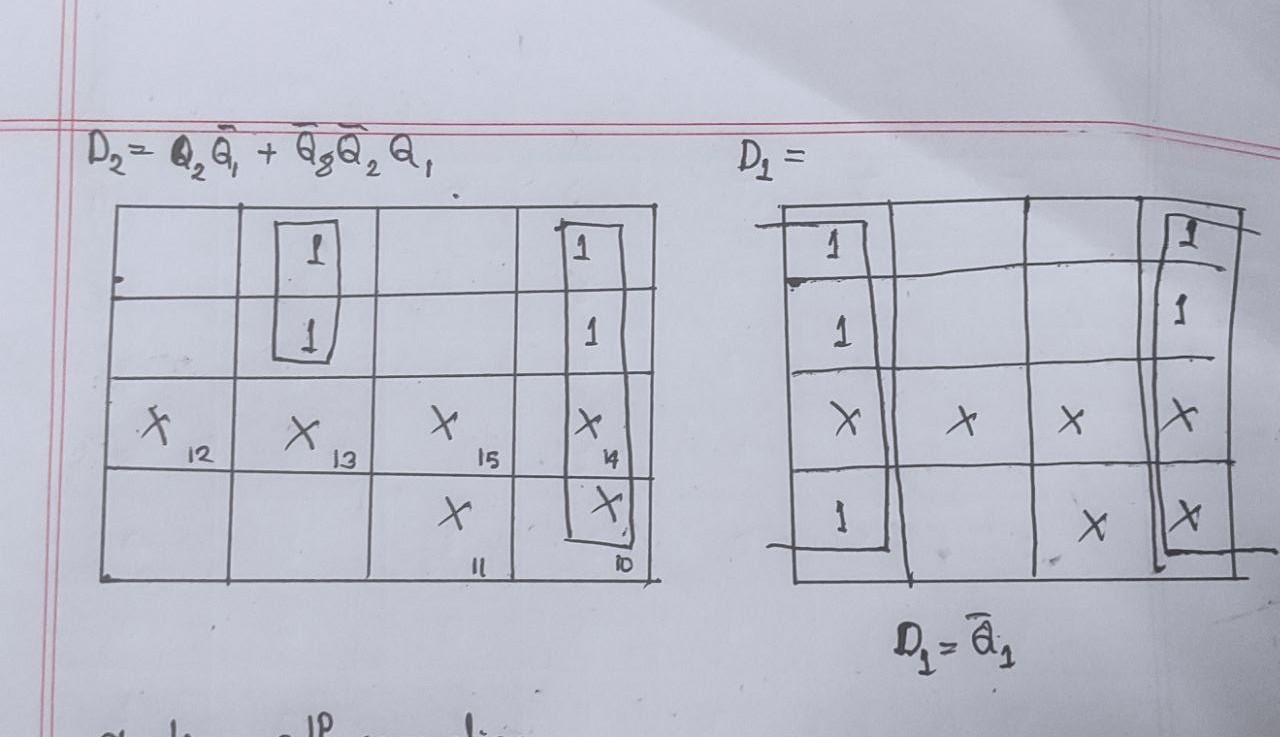 D₂ = Q₂Q̄₁ + Q̄₈Q̄₂Q₁
1 1
1 1
X 12 X 13 X 15 X 14
X 11 X 10
D₁ =
1 1
1 1
X X X X
1 X X
D₁ = Q̄₁